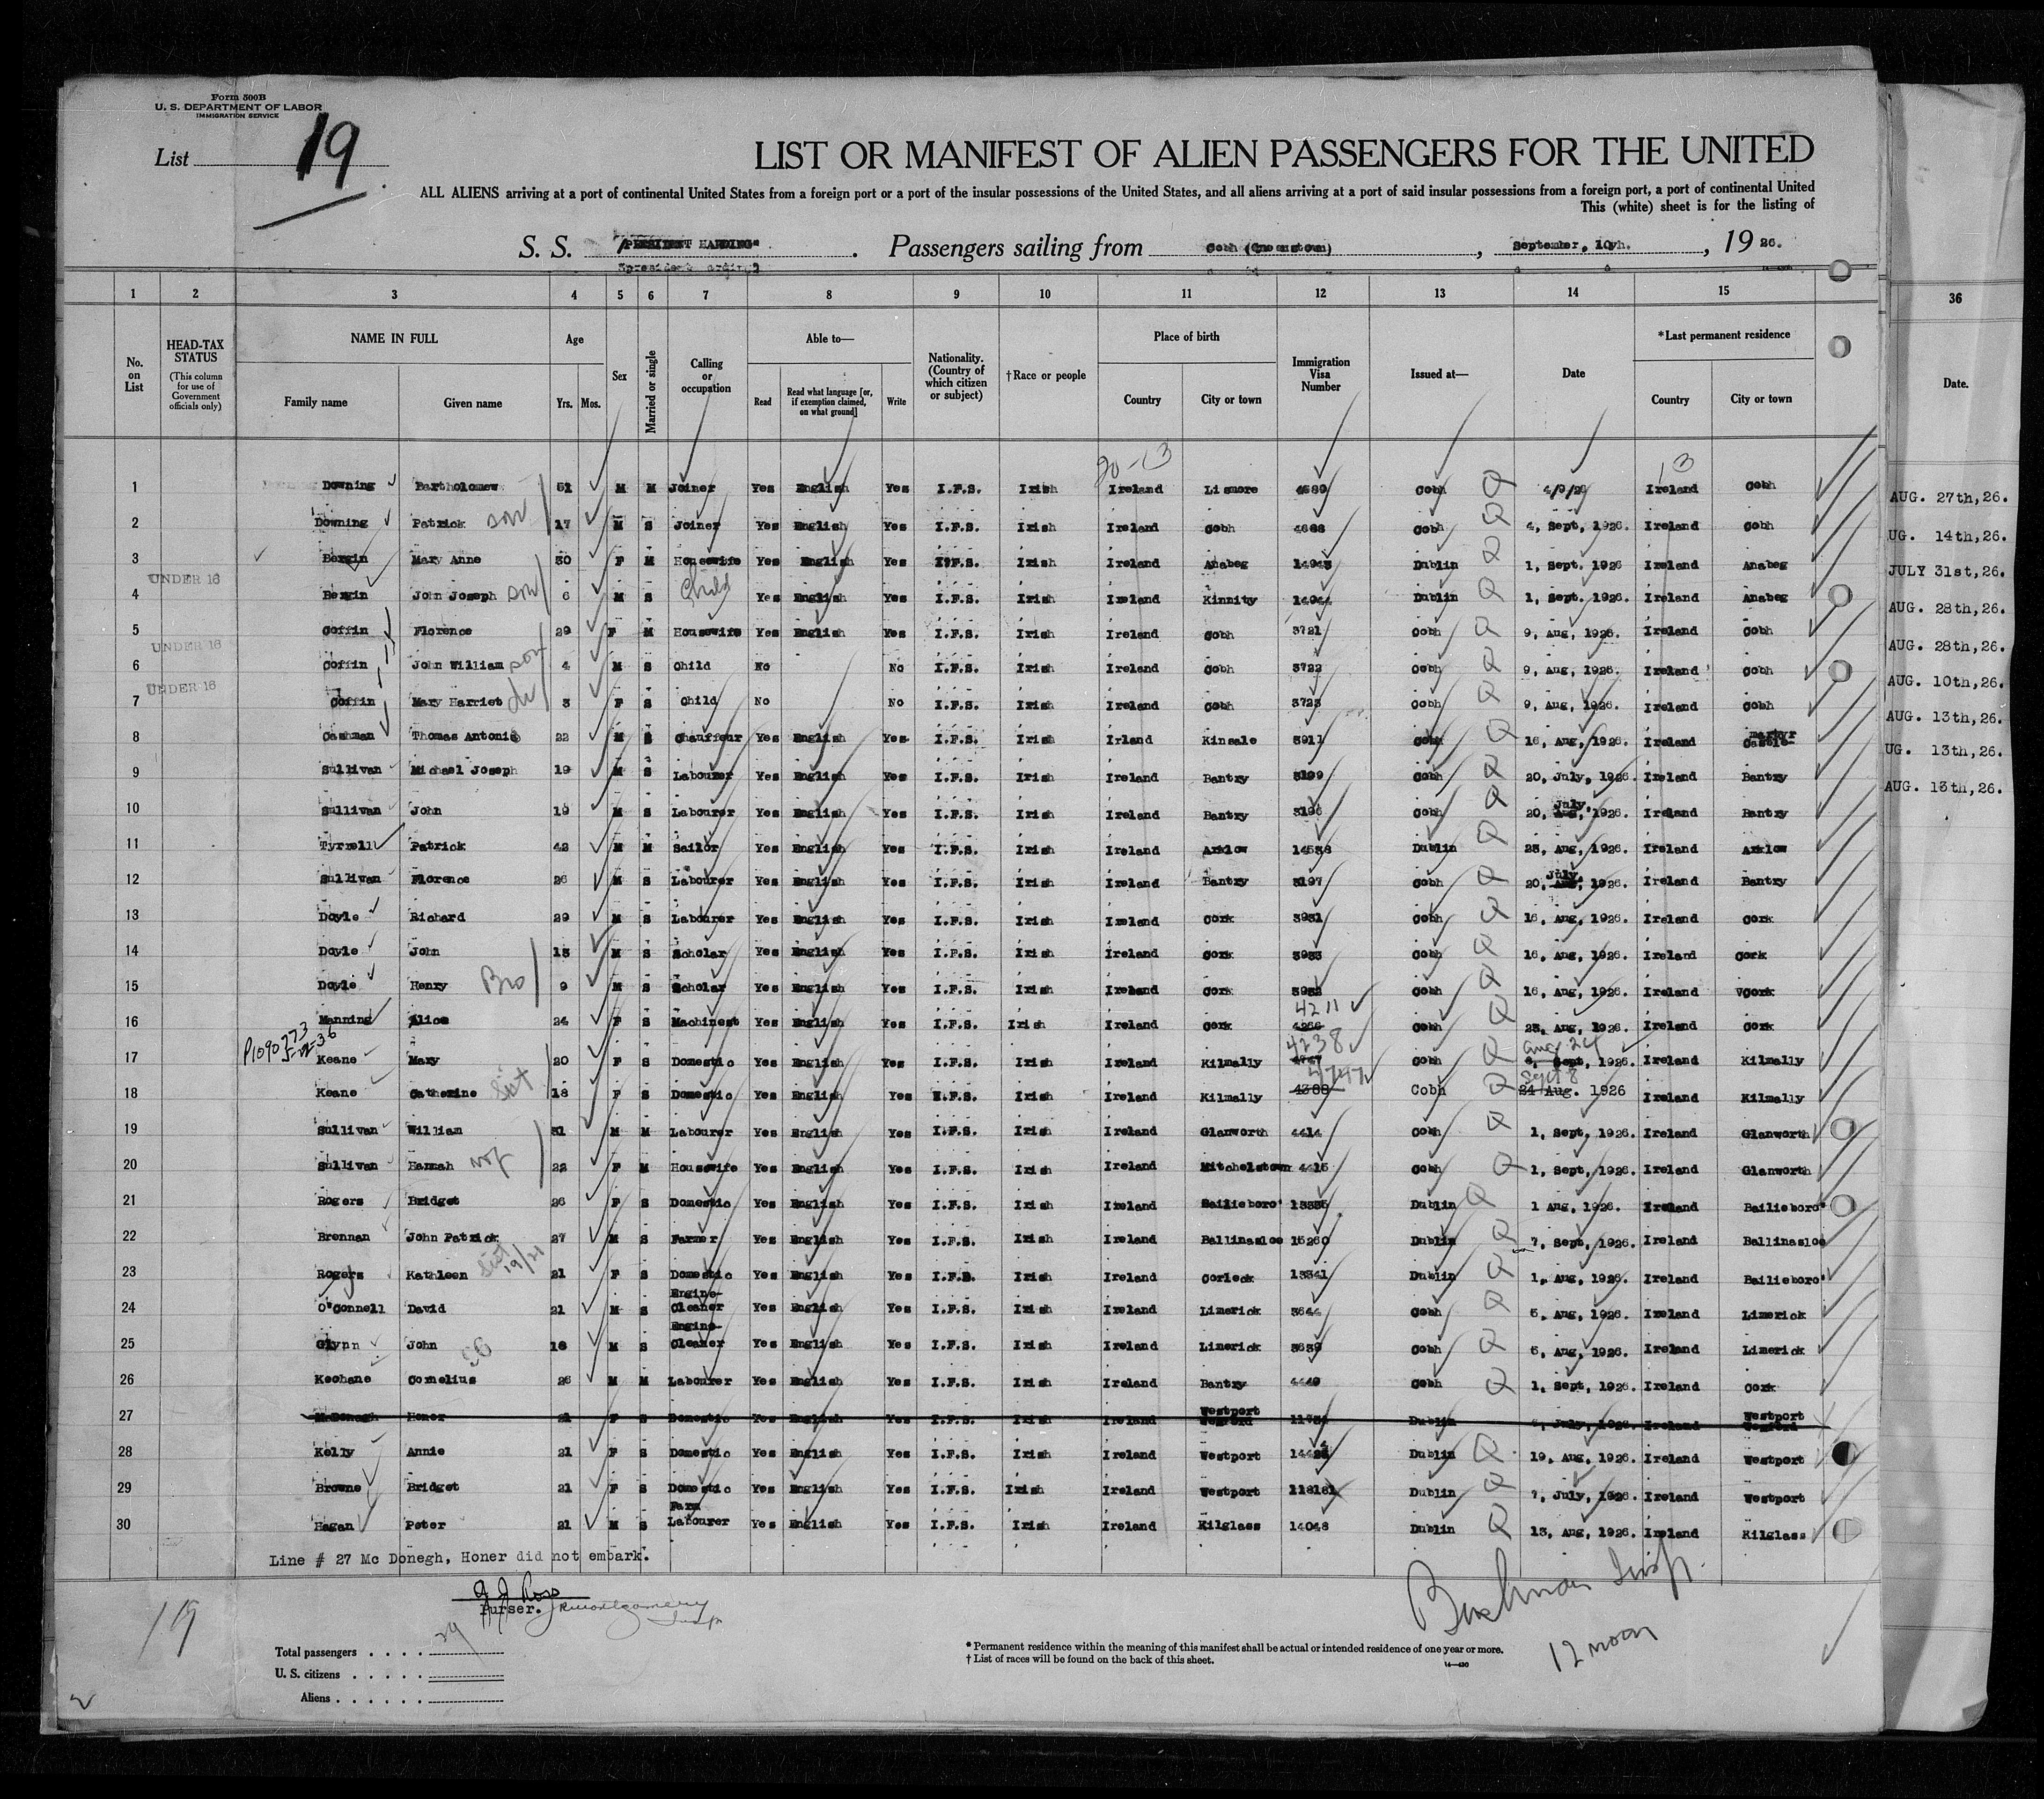 Form 500B
U. S. DEPARTMENT OF LABOR
IMMIGRATION SERVICE
List 19
LIST OR MANIFEST OF ALIEN PASSENGERS FOR THE UNITED
ALL ALIENS arriving at a port of continental United States from a foreign port or a port of the insular possessions of the United States, and all aliens arriving at a port of said insular possessions from a foreign port, a port of continental United
This (white) sheet is for the listing of
S. S. "PRESIDENT HARDING". Passengers sailing from Cobh (Queenstown), September, 10th., 1926.
1 2 3 4 5 6 7 8 9 10 11 12 13 14 15 36
No. on List
HEAD-TAX STATUS (This column for use of Government officials only)
NAME IN FULL Family name Given name
Age Yrs. Mos.
Sex
Married or single
Calling or occupation
Able to— Read Read what language [or, if exemption claimed, on what ground] Write
Nationality. (Country of which citizen or subject)
†Race or people
Place of birth Country City or town
Immigration Visa Number
Issued at—
Date
*Last permanent residence Country City or town
Date.
20-13 13
1 Downing Bartholomew 51 M M Joiner Yes English Yes I.F.S. Irish Ireland Lismore 4589 Cobh Q 4/9/26 Ireland Cobh
AUG. 27th,26.
2 Downing Patrick son 17 M S Joiner Yes English Yes I.F.S. Irish Ireland Cobh 4688 Cobh Q 4, Sept, 1926. Ireland Cobh
UG. 14th,26.
3 Bergin Mary Anne 30 F M Housewife Yes English Yes I.F.S. Irish Ireland Anabeg 14943 Dublin Q 1, Sept. 1926 Ireland Anabeg
JULY 31st,26.
UNDER 16
4 Bergin John Joseph son 6 M S Child Yes English Yes I.F.S. Irish Ireland Kinnity 14944 Dublin Q 1, Sept. 1926. Ireland Anabeg
AUG. 28th,26.
5 Coffin Florence 29 F M Housewife Yes English Yes I.F.S. Irish Ireland Cobh 3721 Cobh Q 9, Aug, 1926. Ireland Cobh
AUG. 28th,26.
UNDER 16
6 Coffin John William son 4 M S Child No No I.F.S. Irish Ireland Cobh 3722 Cobh Q 9, Aug, 1926. Ireland Cobh
AUG. 10th,26.
UNDER 16
7 Coffin Mary Harriet 3 F S Child No No I.F.S. Irish Ireland Cobh 3723 Cobh Q 9, Aug, 1926. Ireland Cobh
AUG. 13th,26.
8 Cashman Thomas Antonie 22 M S Chauffeur Yes English Yes I.F.S. Irish Irland Kinsale 3911 Cobh Q 16, Aug, 1926. Ireland Castle martyr
UG. 13th,26.
9 Sullivan Michael Joseph 19 M S Labourer Yes English Yes I.F.S. Irish Ireland Bantry 3199 Cobh Q 20, July, 1926. Ireland Bantry
AUG. 13th,26.
10 Sullivan John 19 M S Labourer Yes English Yes I.F.S. Irish Ireland Bantry 3196 Cobh Q 20, July, Aug, 1926. Ireland Bantry
11 Tyrrell Patrick 42 M M Sailor Yes English Yes I.F.S. Irish Ireland Arklow 14538 Dublin Q 23, Aug, 1926. Ireland Arklow
12 Sullivan Florence 26 M S Labourer Yes English Yes I.F.S. Irish Ireland Bantry 3197 Cobh Q 20, July, Aug, 1926. Ireland Bantry
13 Doyle Richard 29 M S Labourer Yes English Yes I.F.S. Irish Ireland Cork 3931 Cobh Q 16, Aug, 1926. Ireland Cork
14 Doyle John 13 M S Scholar Yes English Yes I.F.S. Irish Ireland Cork 3933 Cobh Q 16, Aug, 1926. Ireland Cork
15 Doyle Henry Bro 9 M S Scholar Yes English Yes I.F.S. Irish Ireland Cork 3932 Cobh Q 16, Aug, 1926. Ireland Cork
16 Manning Alice 24 F S Machinest Yes English Yes I.F.S. Irish Ireland Cork 4211 4266 Cobh Q 23, Aug, 1926. Ireland Cork
17 Keane Mary 20 F S Domestic Yes English Yes I.F.S. Irish Ireland Kilmally 4238 4747 Cobh Q Aug 24 Sept, 1926. Ireland Kilmally
18 Keane Catherine Sist 18 F S Domestic Yes English Yes I.F.S. Irish Ireland Kilmally 4747 4388 Cobh Q Sept 8 24 Aug. 1926 Ireland Kilmally
19 Sullivan William 31 M M Labourer Yes English Yes I.F.S. Irish Ireland Glanworth 4414 Cobh Q 1, Sept, 1926. Ireland Glanworth
20 Sullivan Hannah wif 22 F M Housewife Yes English Yes I.F.S. Irish Ireland Mitchelstown 4415 Cobh Q 1, Sept, 1926. Ireland Glanworth
21 Rogers Bridget 26 F S Domestic Yes English Yes I.F.S. Irish Ireland Bailieboro' 13335 Dublin Q 1 Aug, 1926. Ireland Bailieboro'
22 Brennan John Patrick 27 M S Farmer Yes English Yes I.F.S. Irish Ireland Ballinasloe 15260 Dublin Q 7, Sept, 1926. Ireland Ballinasloe
23 Rogers Kathleen Sist 19/21 21 F S Domestic Yes English Yes I.F.S. Irish Ireland Corleck 13341 Dublin Q 1, Aug, 1926. Ireland Bailieboro'
24 O'Connell David 21 M S Engine-Cleaner Yes English Yes I.F.S. Irish Ireland Limerick 3644 Cobh Q 5, Aug, 1926. Ireland Limerick
25 Glynn John 18 M S Engine-Cleaner Yes English Yes I.F.S. Irish Ireland Limerick 3639 Cobh Q 5, Aug, 1926. Ireland Limerick
26 Keohane Cornelius 26 M M Labourer Yes English Yes I.F.S. Irish Ireland Bantry 4449 Cobh Q 1, Sept, 1926. Ireland Cork
27 McDonagh Honor 21 F S Domestic Yes English Yes I.F.S. Irish Ireland Westport Dublin July, 1926. Ireland Westport
28 Kelly Annie 21 F S Domestic Yes English Yes I.F.S. Irish Ireland Westport Dublin Q 19, Aug, 1926. Ireland Westport
29 Browne Bridget 21 F S Domestic Yes English Yes I.F.S. Irish Ireland Westport Dublin Q 7, July, 1926. Ireland Westport
30 Hagan Peter 21 M S Farm Labourer Yes English Yes I.F.S. Irish Ireland Kilglass 14048 Dublin Q 13, Aug, 1926. Ireland Kilglass
Line # 27 Mc Donegh, Honer did not embark.
Purser.
19
Total passengers 29
U. S. citizens
Aliens
* Permanent residence within the meaning of this manifest shall be actual or intended residence of one year or more.
† List of races will be found on the back of this sheet.
12 noon